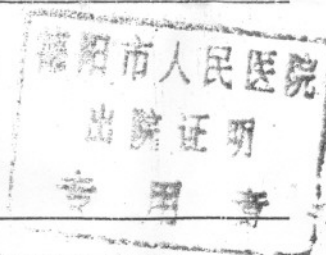 阳市人民医院
出院证明
专用章